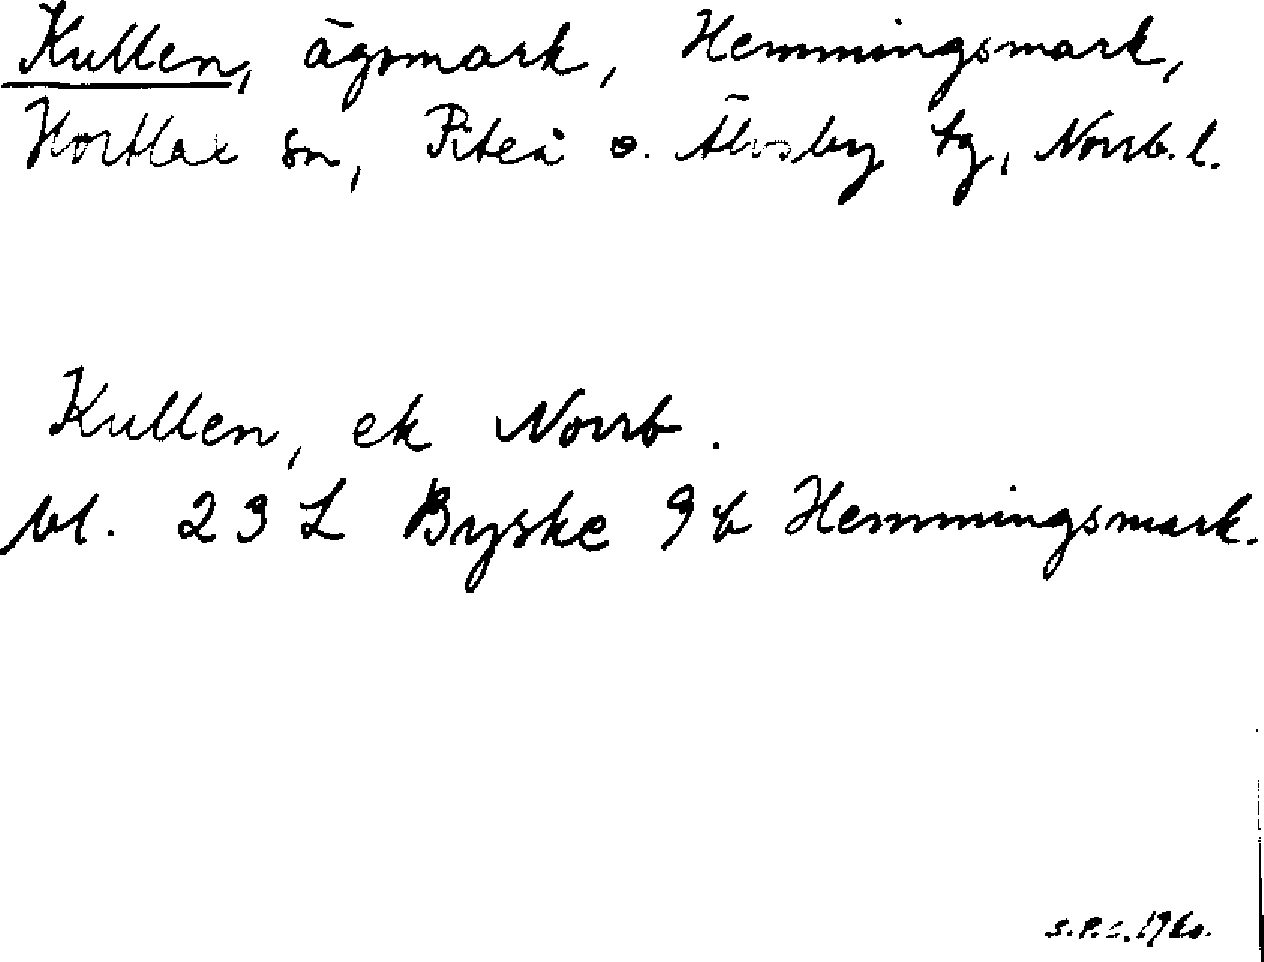 Kullen, ägomark, Hemmingsmark,
Hortlax sn, Piteå o. Älvsby tg, Norrb. l.
Kullen, ek Norrb.
bl. 23 L Byske 9 b Hemmingsmark.